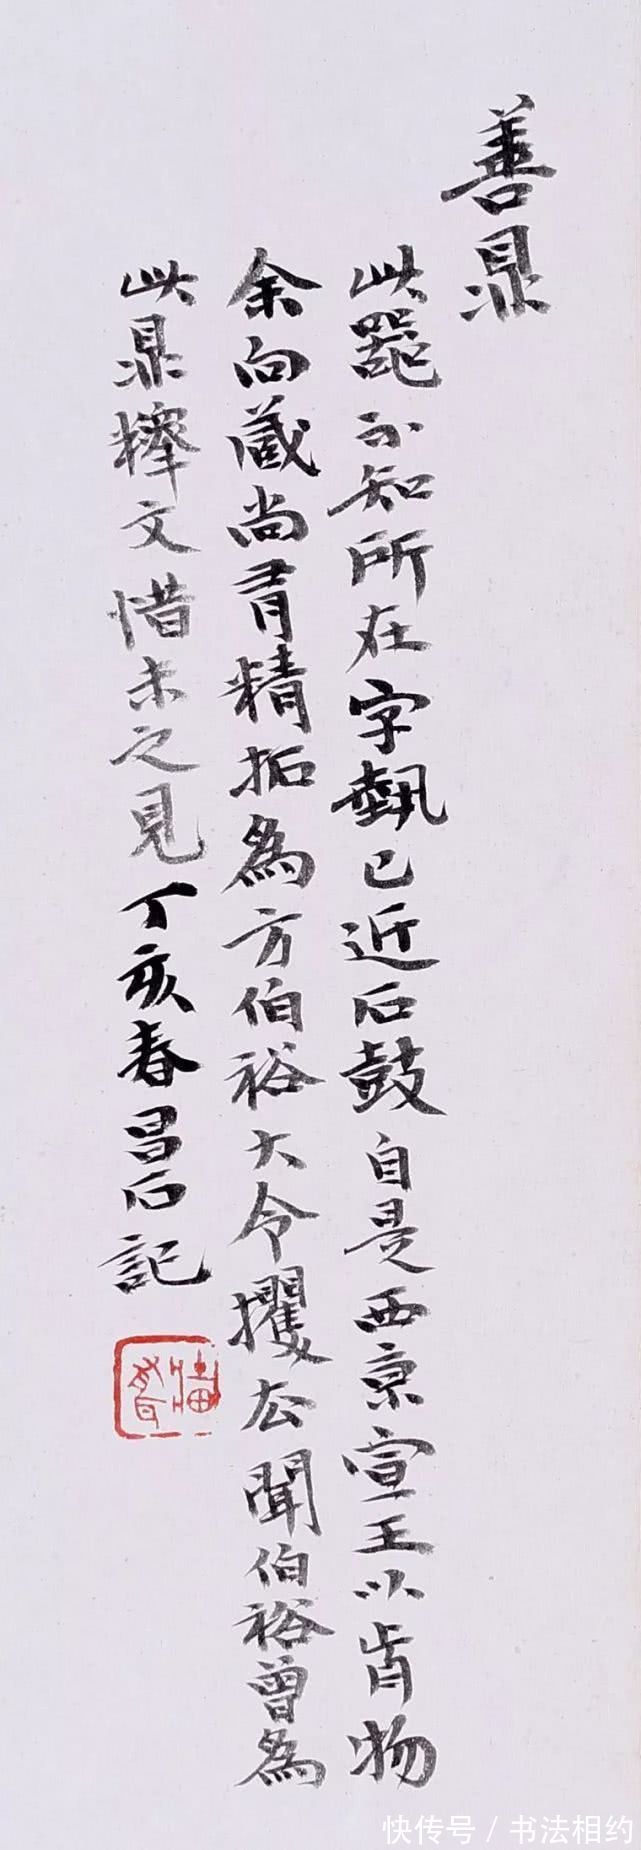 善鼎
此器不知所在字埶已近石鼓自是西京宣王以肯物
余向藏尚有精拓為方伯裕大令攫去聞伯裕曾為
此鼎釋文惜未之見丁亥春昌石記
快传号 / 书法相约